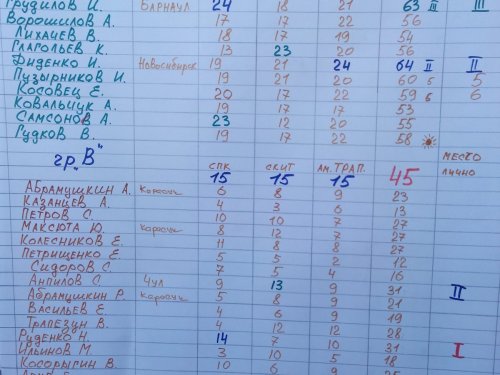 Грудилов И. Барнаул 24 18 21 63 III III
Ворошилов А. 17 17 22 56
Лихачев В. 18 17 19 54
Глагольев К. 13 23 20 56
Диденко И. Новосибирск 19 21 24 64 II II
Пузырников И. 19 21 20 60 5 5
Косовец Е. 20 17 22 59 6 6
Ковальчук А. 19 17 17 53
Самсонов А. 23 12 20 55
Гудков В. 19 17 22 58
гр. "В" место
спк скит ам.трап. лично
15 15 15 45
Абрамушкин А. Карасук 6 8 9 23
Казанцев А. 4 3 6 13
Петров С. 10 10 7 27
Максюта Ю. Карасук 8 12 7 27
Колесников Е. 11 8 8 27
Петрищенко Е. 5 5 2 12
Сидоров С. 7 5 4 16
Анпилов С. Чул 9 13 9 31 II
Абрамушкин Р. Карасук 5 8 9 21
Васильев Е. 4 6 9 19
Трапезун В. 4 12 12 28
Руденко Н. 14 7 10 31 I
Ильинов М. 3 10 5 18
Косорыгин В. 10 6 9 25